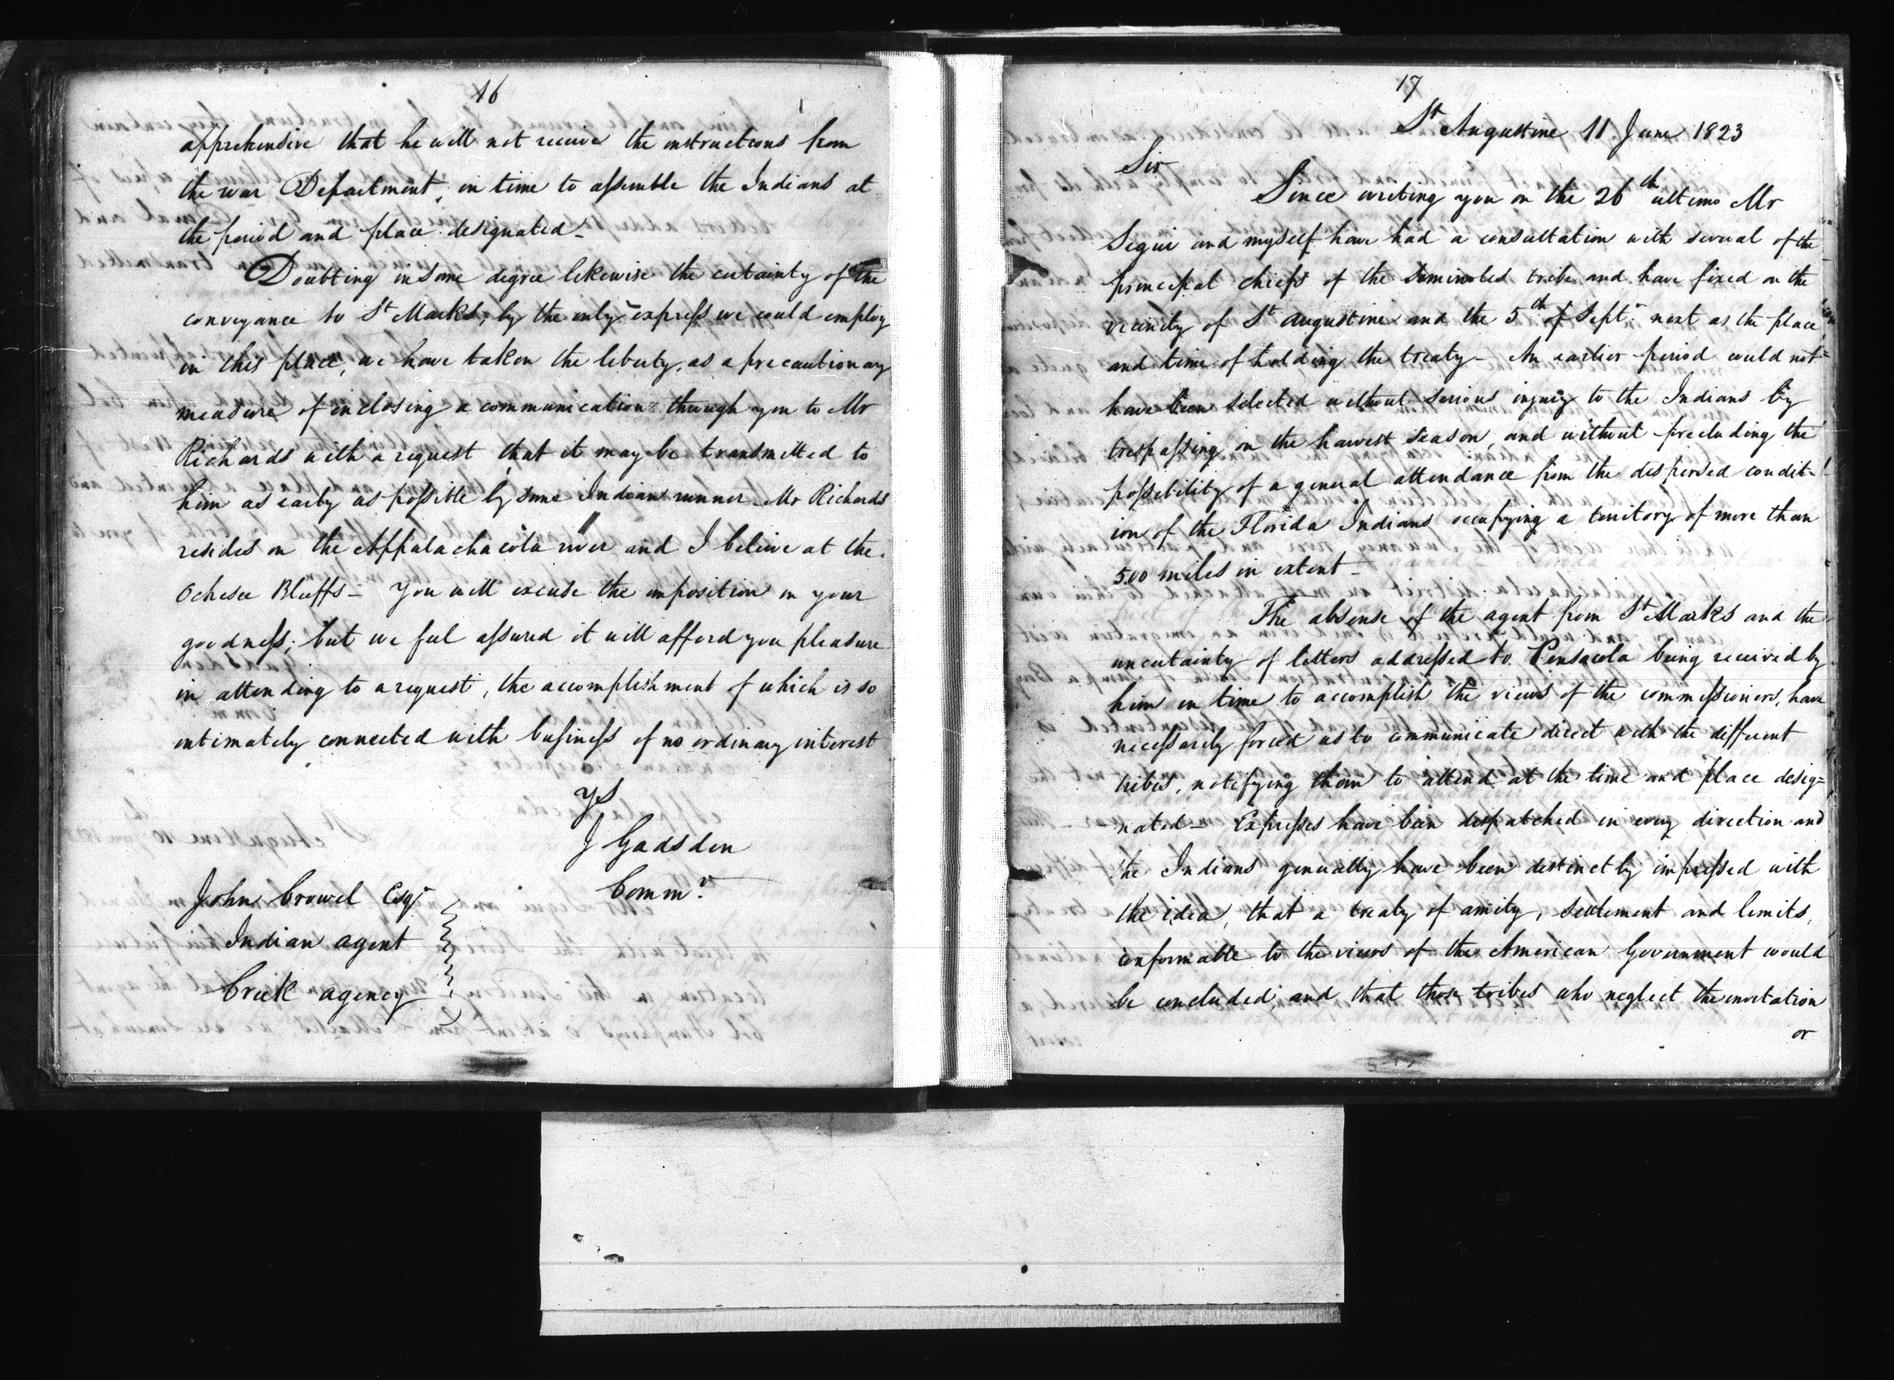 16
apprehensive that he will not receive the instructions from
the war Department, in time to assemble the Indians at
the period and place designated–
Doubting in some degree likewise the certainty of the
conveyance to St Marks, by the only express we could employ
in this place, we have taken the liberty, as a precautionary
measure of inclosing a communication through you to Mr
Richards with a request that it may be transmitted to
him as early as possible by some Indian runner– Mr Richards
resides on the Appalachacola river and I believe at the
Ochesee Bluffs– You will excuse the imposition on your
goodness; but we feel assured it will afford you pleasure
in attending to a request, the accomplishment of which is so
intimately connected with business of no ordinary interest
Yrs
J Gadsden
Commr
John Crowel Esqr
Indian agent
Creek agency
17
St Augustine 11 June 1823
Sir
Since writing you on the 26th ultimo Mr
Segui and myself have had a consultation with several of the
principal chiefs of the Seminoles tribe and have fixed on the
vicinity of St Augustine and the 5th of Sept. next as the place
and time of holding the treaty– An earlier period could not
have been selected without serious injury to the Indians by
trespassing on the harvest season, and without precluding the
possibility of a general attendance from the dispersed condit-
ion of the Florida Indians occupying a territory of more than
500 miles in extent–
The absense of the agent from St Marks and the
uncertainty of letters addressed to Pensacola being received by
him in time to accomplish the views of the commissioners, have
necessarily forced us to communicate direct with the different
tribes, notifying them to attend at the time and place desig=
nated– Expresses have been despatched in every direction and
the Indians generally have been distinctly impressed with
the idea, that a treaty of amity, settlement and limits,
conformable to the views of the American Government would
be concluded; and that those tribes who neglect the invitation
or